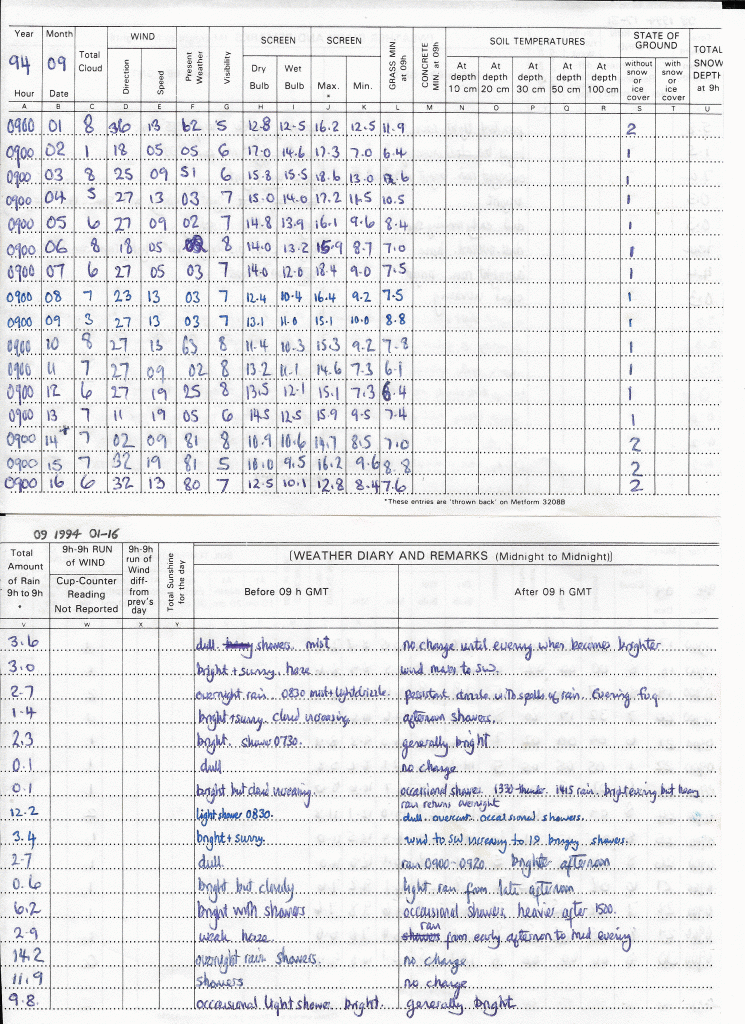 Year Month Total Cloud WIND Present Weather Visibility SCREEN SCREEN GRASS MIN. at 09h CONCRETE MIN. at 09h SOIL TEMPERATURES STATE OF GROUND TOTAL SNOW DEPTH at 9h
94 09 Direction Speed Dry Bulb Wet Bulb Max. * Min. At depth 10 cm At depth 20 cm At depth 30 cm At depth 50 cm At depth 100 cm without snow or ice cover with snow or ice cover
Hour Date
A B C D E F G H I J K L M N O P Q R S T U
0900 01 8 36 13 62 5 12.8 12.5 16.2 12.5 11.9 2
0900 02 1 18 05 05 6 17.0 14.6 17.3 7.0 6.4 1
0900 03 8 25 09 51 6 15.8 15.5 18.6 13.0 .6 1
0900 04 5 27 13 03 7 15.0 14.0 17.2 11.5 10.5 1
0900 05 6 27 09 02 7 14.8 13.9 16.1 9.6 8.4 1
0900 06 8 18 05 8 14.0 13.2 15.9 8.7 7.0 1
0900 07 6 27 05 03 7 14.0 12.0 18.4 9.0 7.5 1
0900 08 7 23 13 03 7 12.4 10.4 16.4 9.2 7.5 1
0900 09 3 27 13 03 7 13.1 11.0 15.1 10.0 8.8 1
0900 10 8 27 13 63 8 11.4 10.3 15.3 9.2 7.8 1
0900 11 7 27 09 02 8 13.2 11.1 14.6 7.3 6.1 1
0900 12 6 27 19 25 8 13.5 12.1 15.1 7.3 6.4 1
0900 13 7 11 19 05 6 14.5 12.5 15.9 9.5 7.4 1
0900 14 7 02 09 81 8 10.9 10.6 14.7 8.5 7.0 2
0900 15 7 32 19 81 5 10.0 9.5 16.2 9.6 8.8 2
0900 16 6 32 13 80 7 12.5 10.1 12.8 8.4 7.6 2
*These entries are 'thrown back' on Metform 3208B
09 1994 01-16
Total Amount of Rain 9h to 9h * 9h-9h RUN of WIND Cup-Counter Reading Not Reported 9h-9h run of Wind diff- from prev's day Total Sunshine for the day (WEATHER DIARY AND REMARKS (Midnight to Midnight))
Before 09 h GMT After 09 h GMT
V W X Y
3.6 dull. showers mist no change until evening when becomes brighter
3.0 bright + sunny. haze wind to SW.
2.7 overnight rain 0830 mist + light drizzle. persistent drizzle with spells of rain. Evening fog
1.4 bright + sunny. cloud increasing, afternoon showers.
2.3 bright. shower 0730. generally bright
0.1 dull no change
0.1 bright but cloud increasing. occassional shower 1330-thunder. 1415 rain. bright evening but heavy rain returns overnight
12.2 light shower 0830. dull. overcast. occassional showers.
3.4 bright + sunny. wind to SW increasing to 19 bringing showers.
2.7 dull. rain 0900-0920. brighter afternoon
0.6 bright but cloudy light rain from late afternoon
6.2 bright with showers occassional showers heavier after 1500.
2.9 weak haze. rain from early afternoon to mid evening
14.2 overnight rain showers. no change
11.9 showers no change
9.8. occassional light shower bright. generally bright